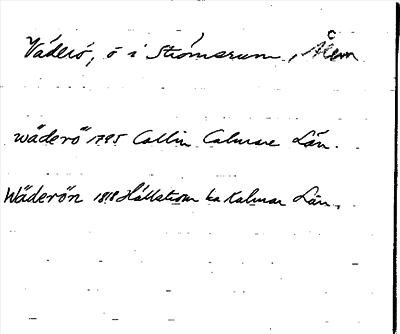 Väderö, ö i Strömsrum, Ålem
Wäderö 1795 Collin Calmare Län.
Wäderön 1818 Hällström ka Kalmar Län.